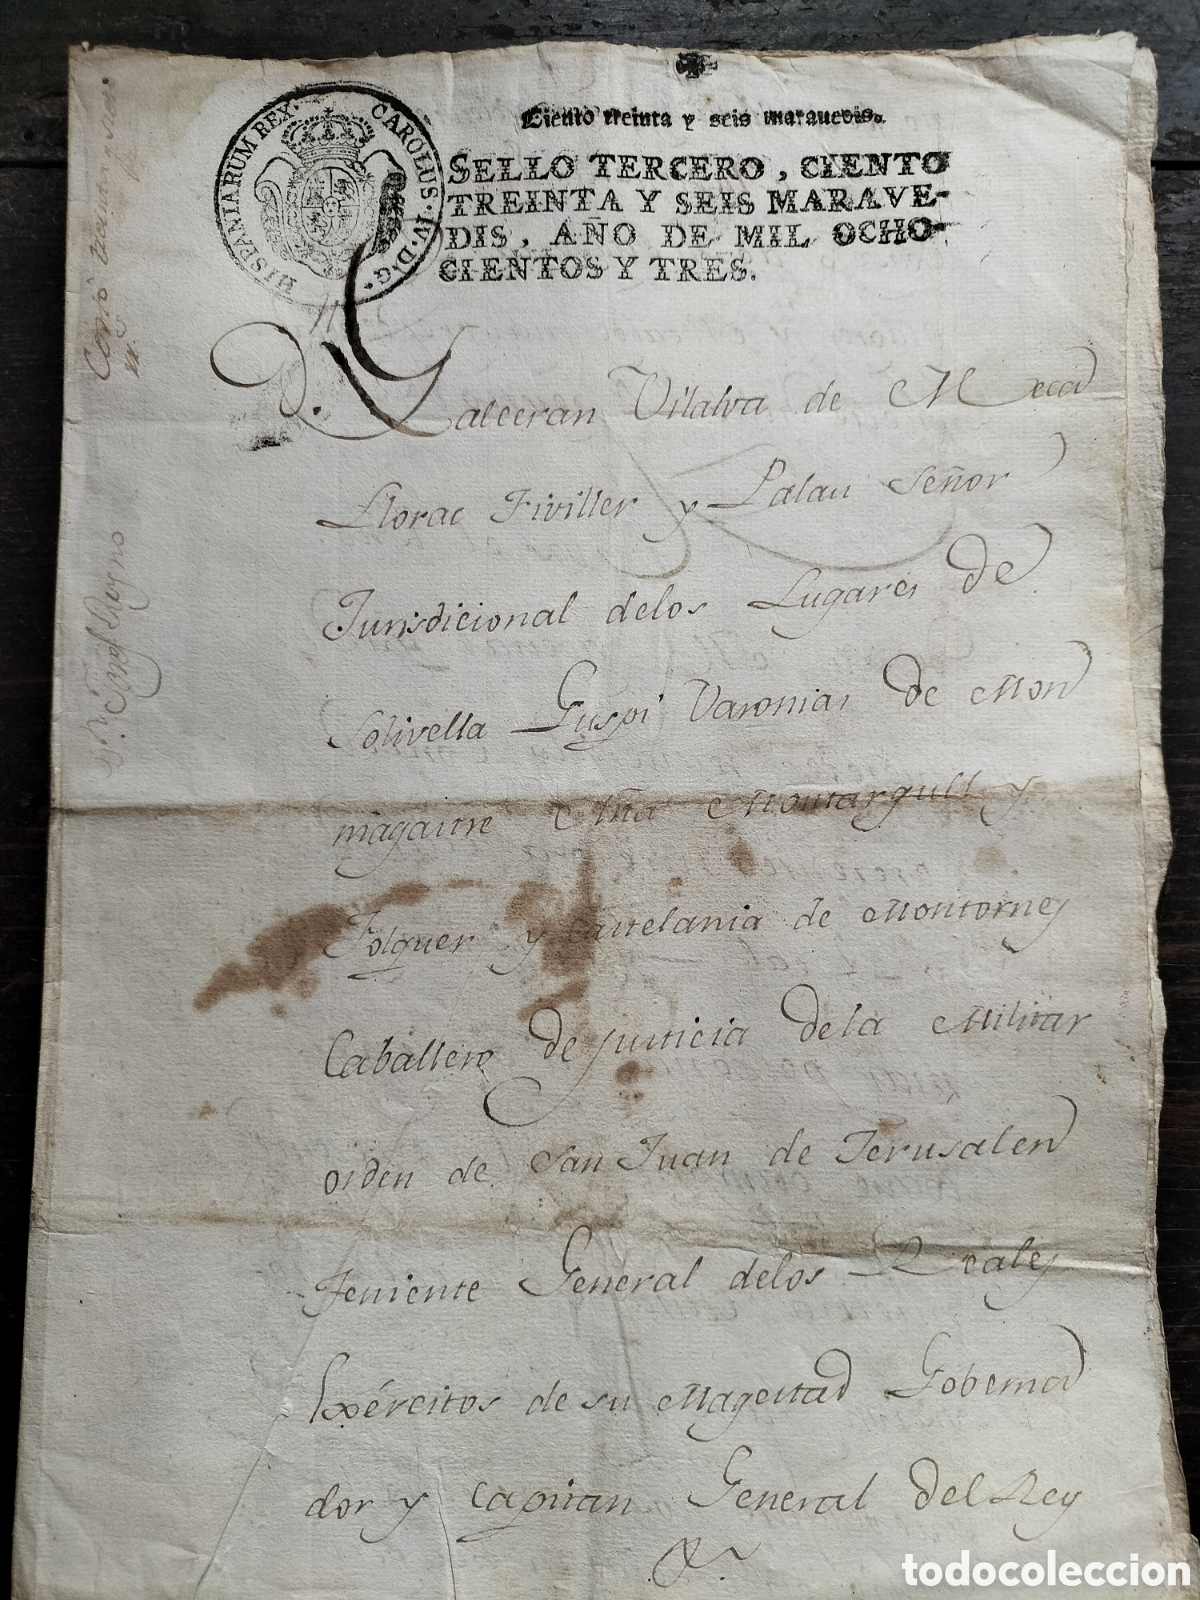 Ciento treinta y seis marauedis.
HISPANIARUM REX. CAROLUS·IV·D·G·
SELLO TERCERO, CIENTO
TREINTA Y SEIS MARAVE-
DIS, AÑO DE MIL OCHO-
CIENTOS Y TRES.
D. Galceran Vilalva de Meca
Llorac Fiviller y Palau Señor
Jurisdicional delos Lugares de
Solivella Guspi Varonias de Mon
magastre Aña Montargull y
Folguer y Castelania de Montornes
Caballero de Justicia dela Militar
orden de San Juan de Jerusalen
Teniente General delos Reales
Exércitos de su Magestad Goberna
dor y Capitan General del Rey
todocoleccion
todocoleccion.net